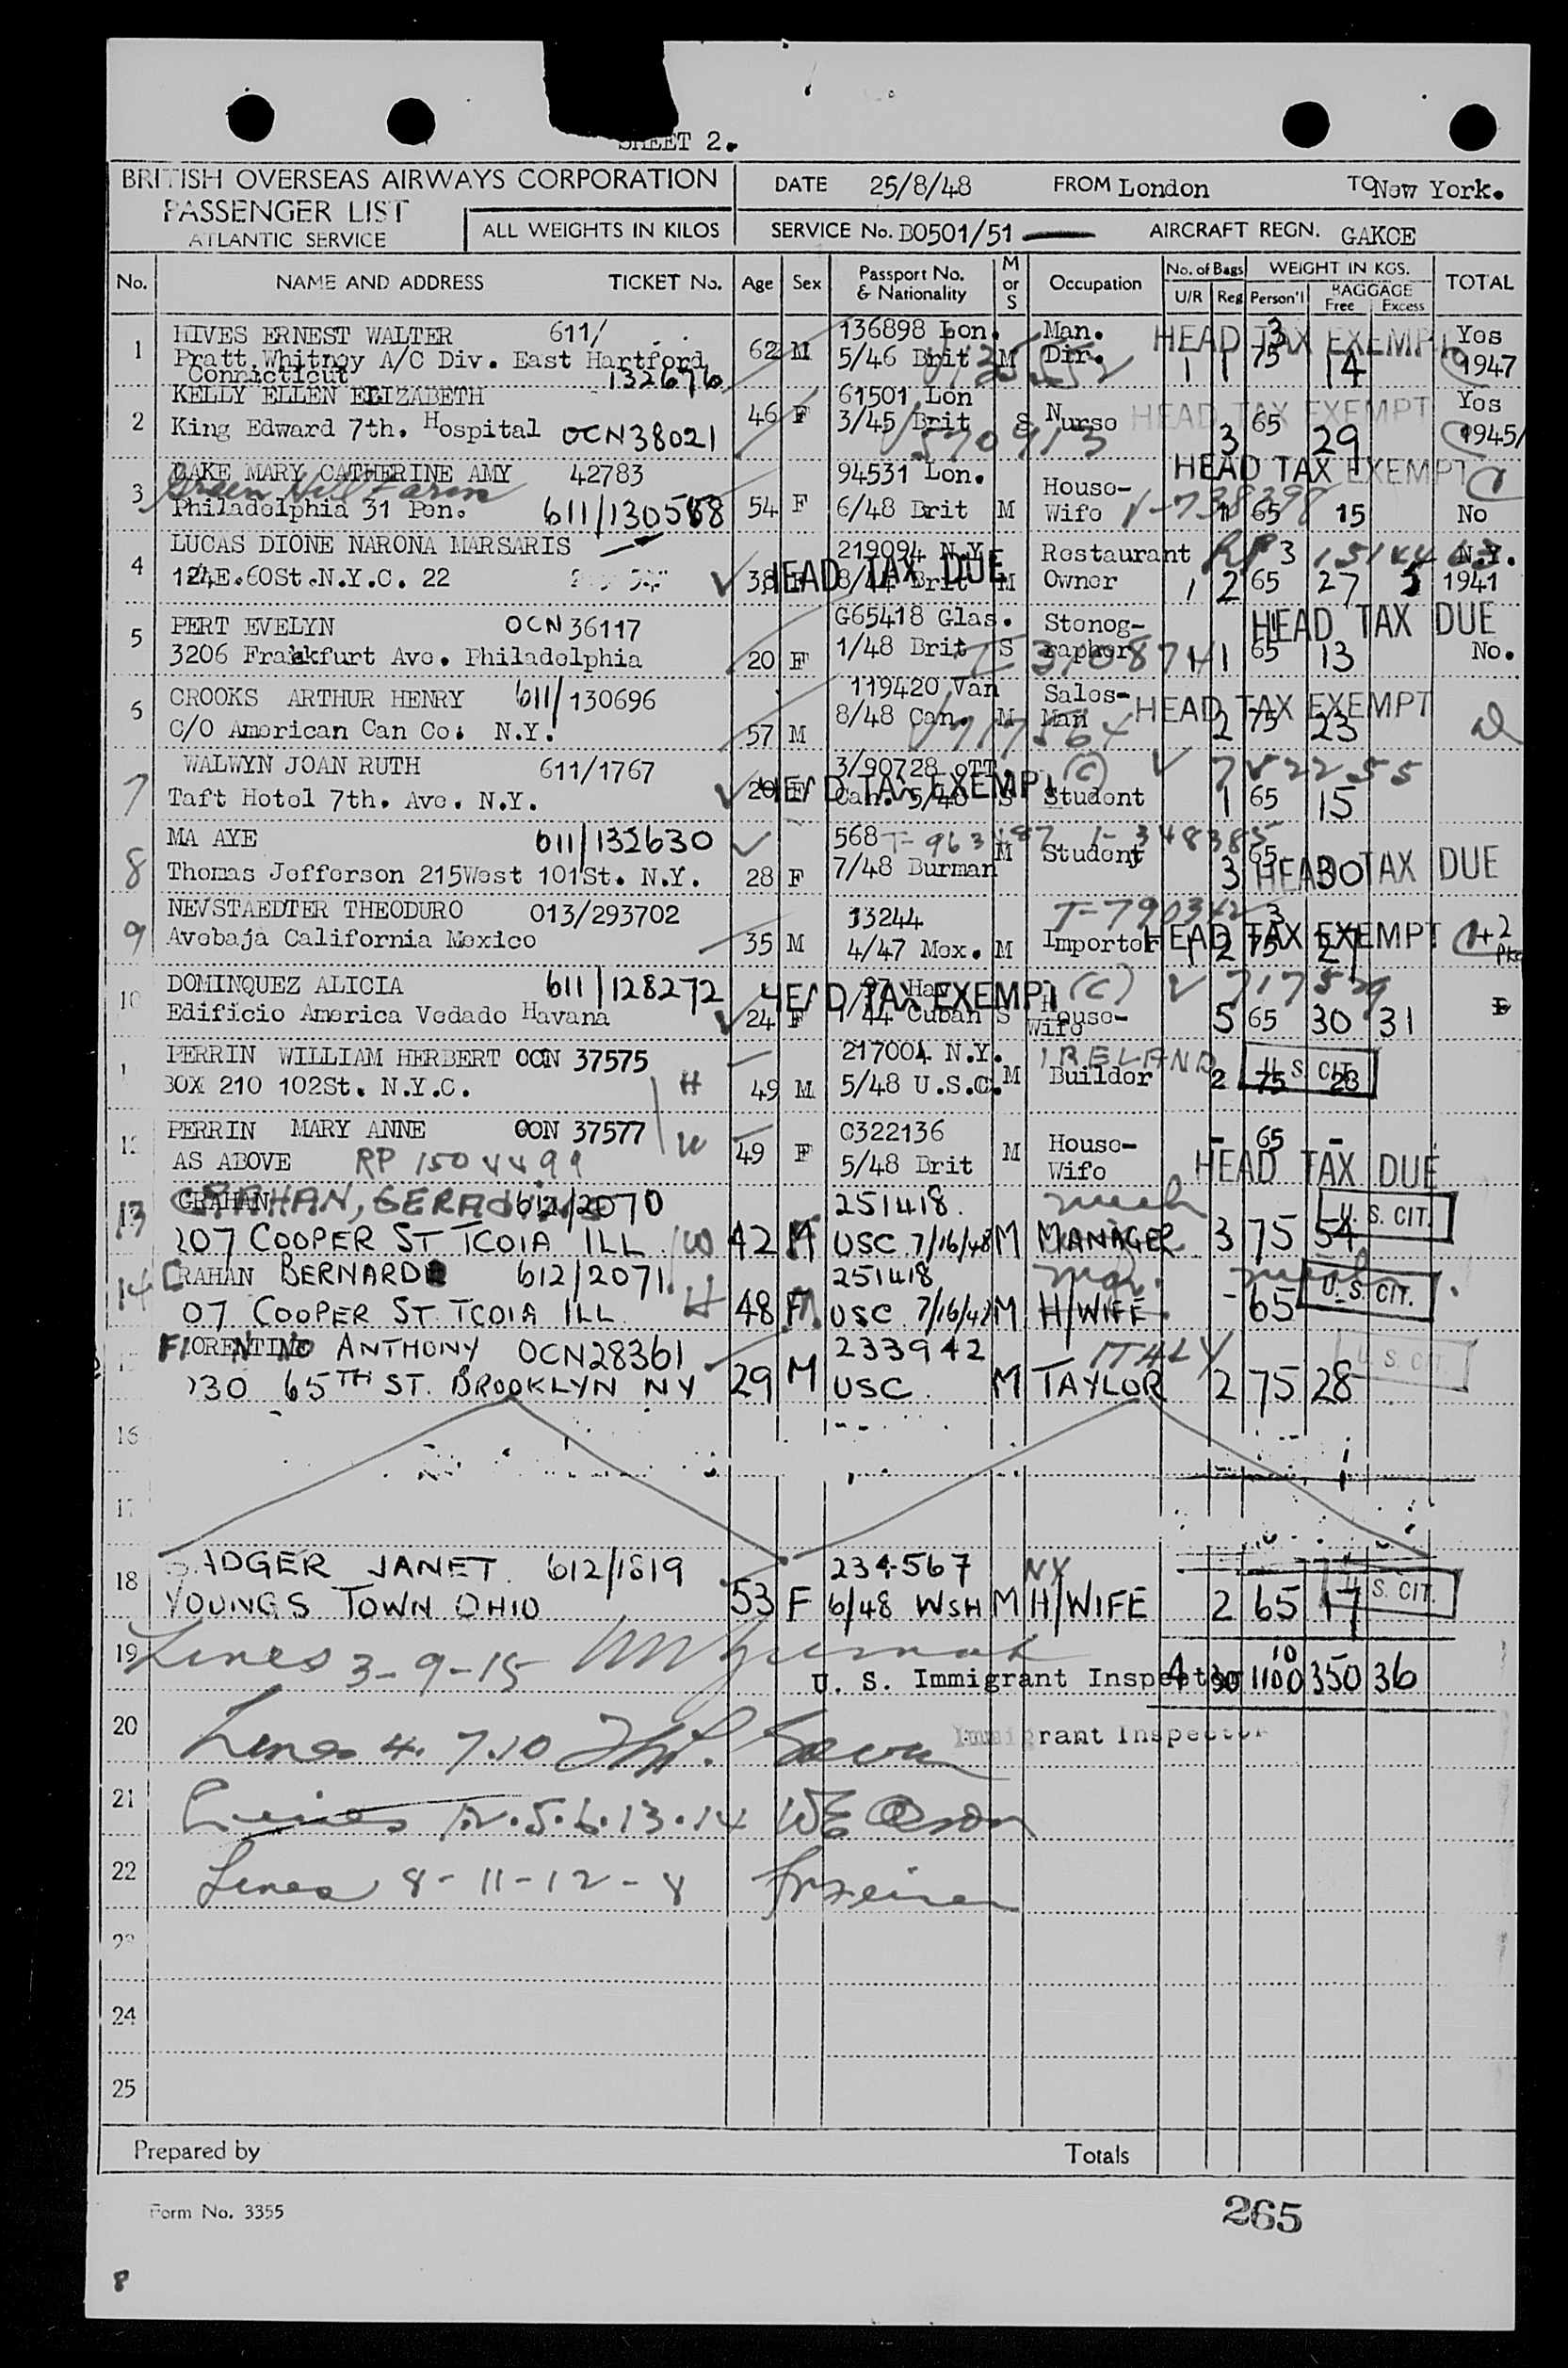 SHEET 2.
BRITISH OVERSEAS AIRWAYS CORPORATION DATE 25/8/48 FROM London TO New York.
PASSENGER LIST
ATLANTIC SERVICE ALL WEIGHTS IN KILOS SERVICE No. B0501/51 AIRCRAFT REGN. GAKCE
No. NAME AND ADDRESS TICKET No. Age Sex Passport No. & Nationality M or S Occupation No. of Bags U/R Reg WEIGHT IN KGS. Person'l BAGGAGE Free Excess TOTAL
1 HIVES ERNEST WALTER 611/ 136898 Lon. Man. HEAD TAX EXEMPT 3 Yes
Pratt Whitney A/C Div. East Hartford 62 M 5/46 Brit M Dir. 1 1 75 14 1947
Connecticut 132676
2 KELLY ELLEN ELIZABETH 46 F 61501 Lon HEAD TAX EXEMPT Yes
King Edward 7th. Hospital OCN38021 3/45 Brit S Nurse 3 65 29 1945/
V 570913
3 CAKE MARY CATHERINE AMY 42783 94531 Lon. House- HEAD TAX EXEMPT
Green Hill Farm
Philadelphia 31 Pen. 611/130588 54 F 6/48 Brit M Wife V-738398 1 65 15 No
4 LUCAS DIONE NARONA MARSARIS 219094 N.Y. Restaurant RP 3 N.Y.
124E.60St.N.Y.C. 22 38 F HEAD TAX DUE 8/44 Brit M Owner 1 2 65 27 5 1941
5 PERT EVELYN OCN 36117 G65418 Glas. Stenog- HEAD TAX DUE
3206 Frankfurt Ave. Philadelphia 20 F 1/48 Brit S rapher 1 65 13 No.
6 CROOKS ARTHUR HENRY 611/130696 119420 Van Sales- HEAD TAX EXEMPT
C/O American Can Co. N.Y. 57 M 8/48 Can. M Man 2 75 23
V717564
7 WALWYN JOAN RUTH 611/1767 3/90728 OTT (C) V 7822255
Taft Hotel 7th. Ave. N.Y. 20 F HEAD TAX EXEMPT Can. 5/48 S Student 1 65 15
8 MA AYE 611/132630 568 T-963487 1-348385
Thomas Jefferson 215West 101St. N.Y. 28 F 7/48 Burman M Student 3 65 30 HEAD TAX DUE
9 NEVSTAEDTER THEODURO 013/293702 33244 T-790342 3
Avebaja California Mexico 35 M 4/47 Mex. M Importer HEAD TAX EXEMPT 1 2 75 27 +2
10 DOMINQUEZ ALICIA 611/128272 HEAD TAX EXEMPT (C) V 717529
Edificio America Vedado Havana 24 F 1/44 Cuban S House- Wife 5 65 30 31
PERRIN WILLIAM HERBERT OCN 37575 217004 N.Y. IRELAND U. S. CIT.
BOX 210 102St. N.Y.C. H 49 M 5/48 U.S.C. M Builder 2 75 23
12 PERRIN MARY ANNE OCN 37577 W C322136 House- - 65 -
AS ABOVE RP 1504499 49 F 5/48 Brit M Wife HEAD TAX DUE
13 GRAHAN, 612/2070 251418. U. S. CIT.
207 COOPER ST TCOIA ILL W 42 USC 7/16/48 M MANAGER 3 75 54
14 GRAHAN BERNARD 612/2071 251418 U. S. CIT.
07 COOPER ST TCOIA ILL H 48 USC 7/16/42 M H/WIFE - 65 -
FIORENTINO ANTHONY OCN28361 233942 ITALY U. S. CIT.
65TH ST. BROOKLYN NY 29 M USC. M TAYLOR 2 75 28
16
17
18 BADGER JANET. 612/1819 234567 NY U. S. CIT.
YOUNGS TOWN OHIO 53 F 6/48 WSH M H/WIFE 2 65 17
19 Lines 3-9-15 10
U. S. Immigrant Inspector 4 30 1100 350 36
20 Lines 4. 7.10 Immigrant Inspector
21 Lines 2.5.6.13.14
22 Lines 8-11-12-8
23
24
25
Prepared by Totals
Form No. 3355
265
8